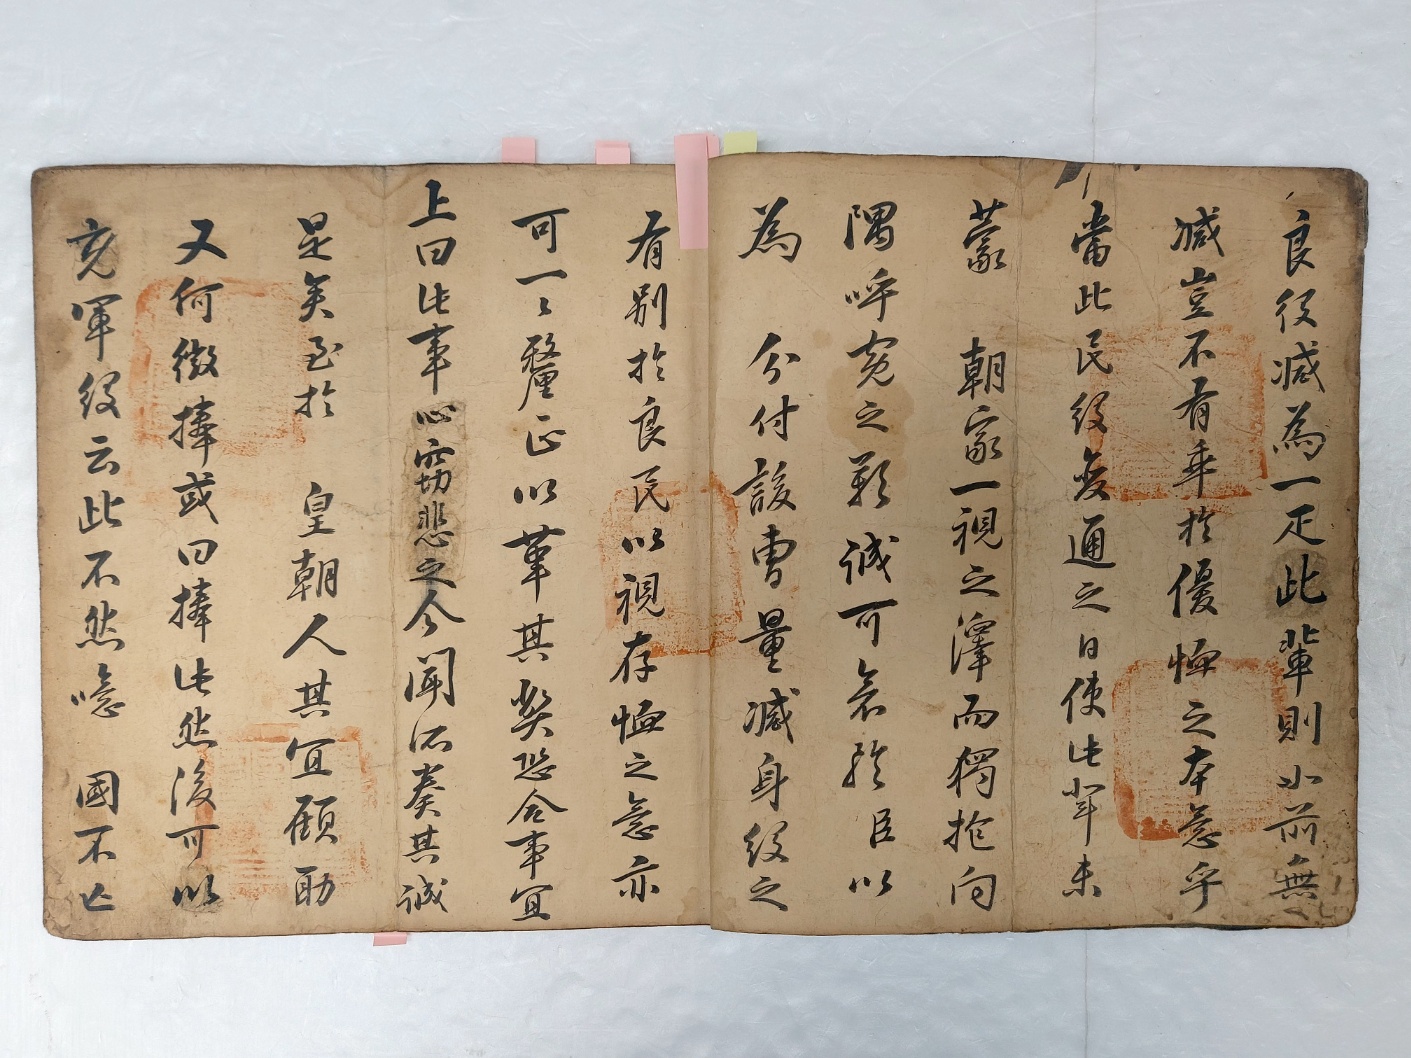 良役减為一疋此輩則小前無
减豈不有乖於優恤之本意乎
當此民役変通之日使此輩未
蒙 朝家一視之澤而獨抱向
隅呼寃之歎誠可哀矜臣以
為 分付該曹量减身役之
有别於良民以視存恤之意亦
可一〻釐正以革其弊恐合事宜
上曰此事心窃悲之今聞所奏其誠
是矣至於 皇朝人其宜顧助
又何徴捧或曰捧此然後可以
充軍役云此不然噫 國不亡